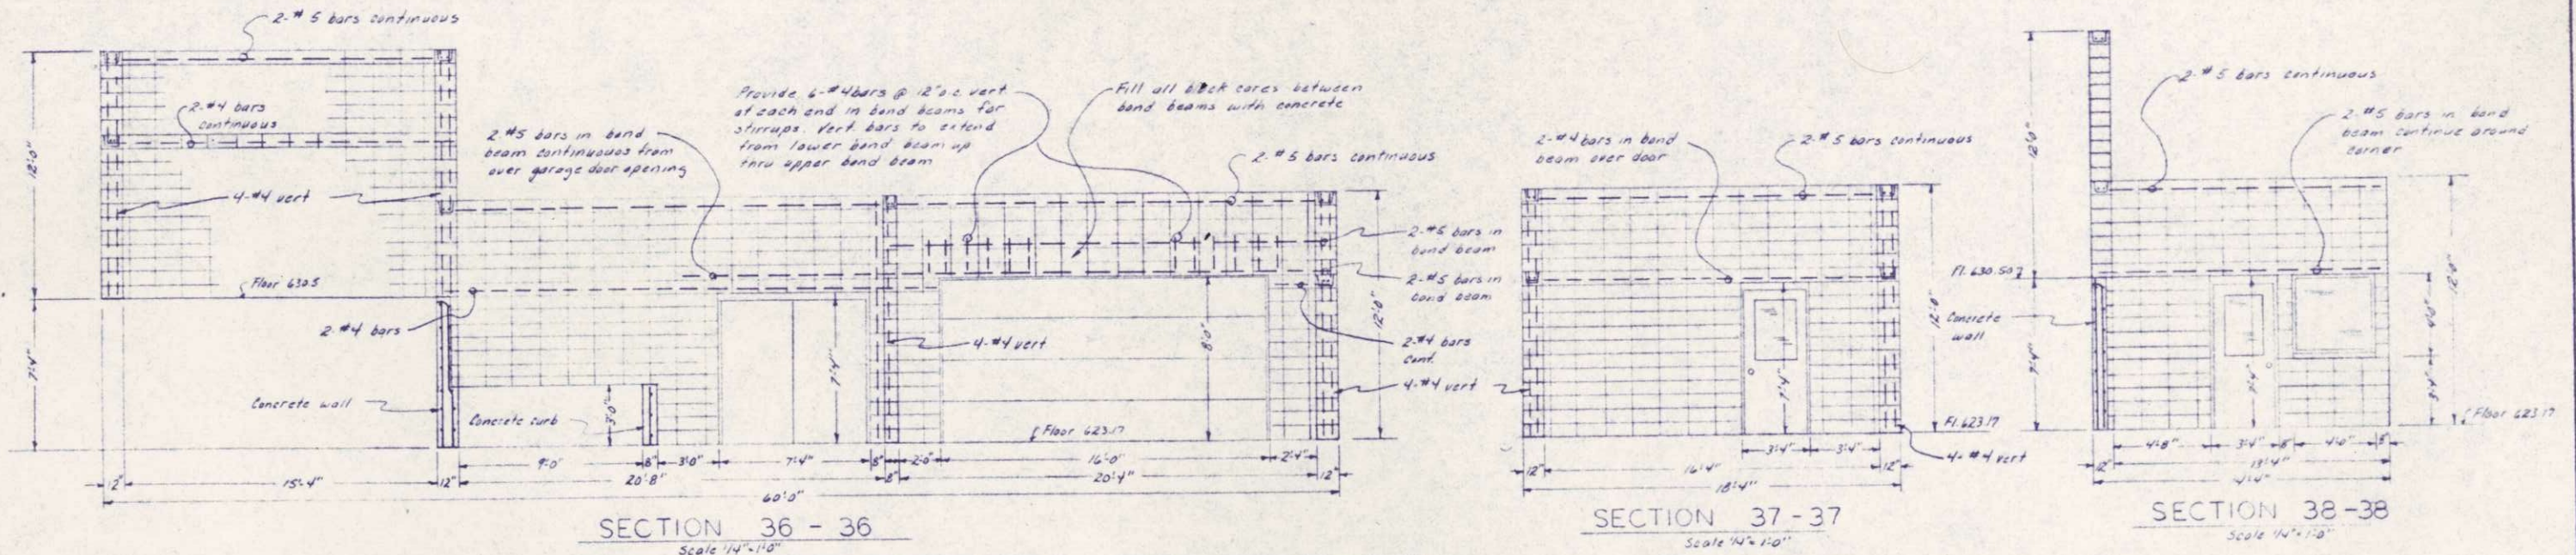 2-#5 bars continuous
2-#4 bars
continuous
12'-0"
4-#4 vert
Floor 630.5
7'-4"
2-#4 bars
Concrete wall
Concrete curb
3'-0"
2-#5 bars in bond
beam continuous from
over garage door opening
Provide 6-#4 bars @ 12" o.c. vert
at each end in bond beams for
stirrups. Vert. bars to extend
from lower bond beam up
thru upper bond beam
Fill all block cores between
bond beams with concrete
2-#5 bars continuous
2-#5 bars in
bond beam
2-#5 bars in
bond beam
12'-0"
2-#4 bars
cont.
4-#4 vert
4-#4 vert
7'-4"
8'-0"
Floor 623.17
9'-0" 8" 3'-0" 7'-4" 8" 2'-0" 16'-0" 2'-4"
12" 15'-4" 12" 20'-8" 8" 20'-4" 12"
60'-0"
SECTION 36-36
Scale 1/4"=1'-0"
2-#4 bars in bond
beam over door
2-#5 bars continuous
12'-0"
7'-4"
Fl. 623.17
4-#4 vert
3'-4" 3'-4"
12" 16'-4" 12"
18'-4"
SECTION 37-37
Scale 1/4"=1'-0"
12'-0"
2-#5 bars continuous
2-#5 bars in bond
beam continue around
corner
Fl. 630.50
Concrete
wall
7'-4"
7'-4"
12'-0"
4'-0"
3'-4"
Floor 623.17
4'-8" 3'-4" 8" 4'-0" 8"
12" 13'-4"
14'-4"
SECTION 38-38
Scale 1/4"=1'-0"